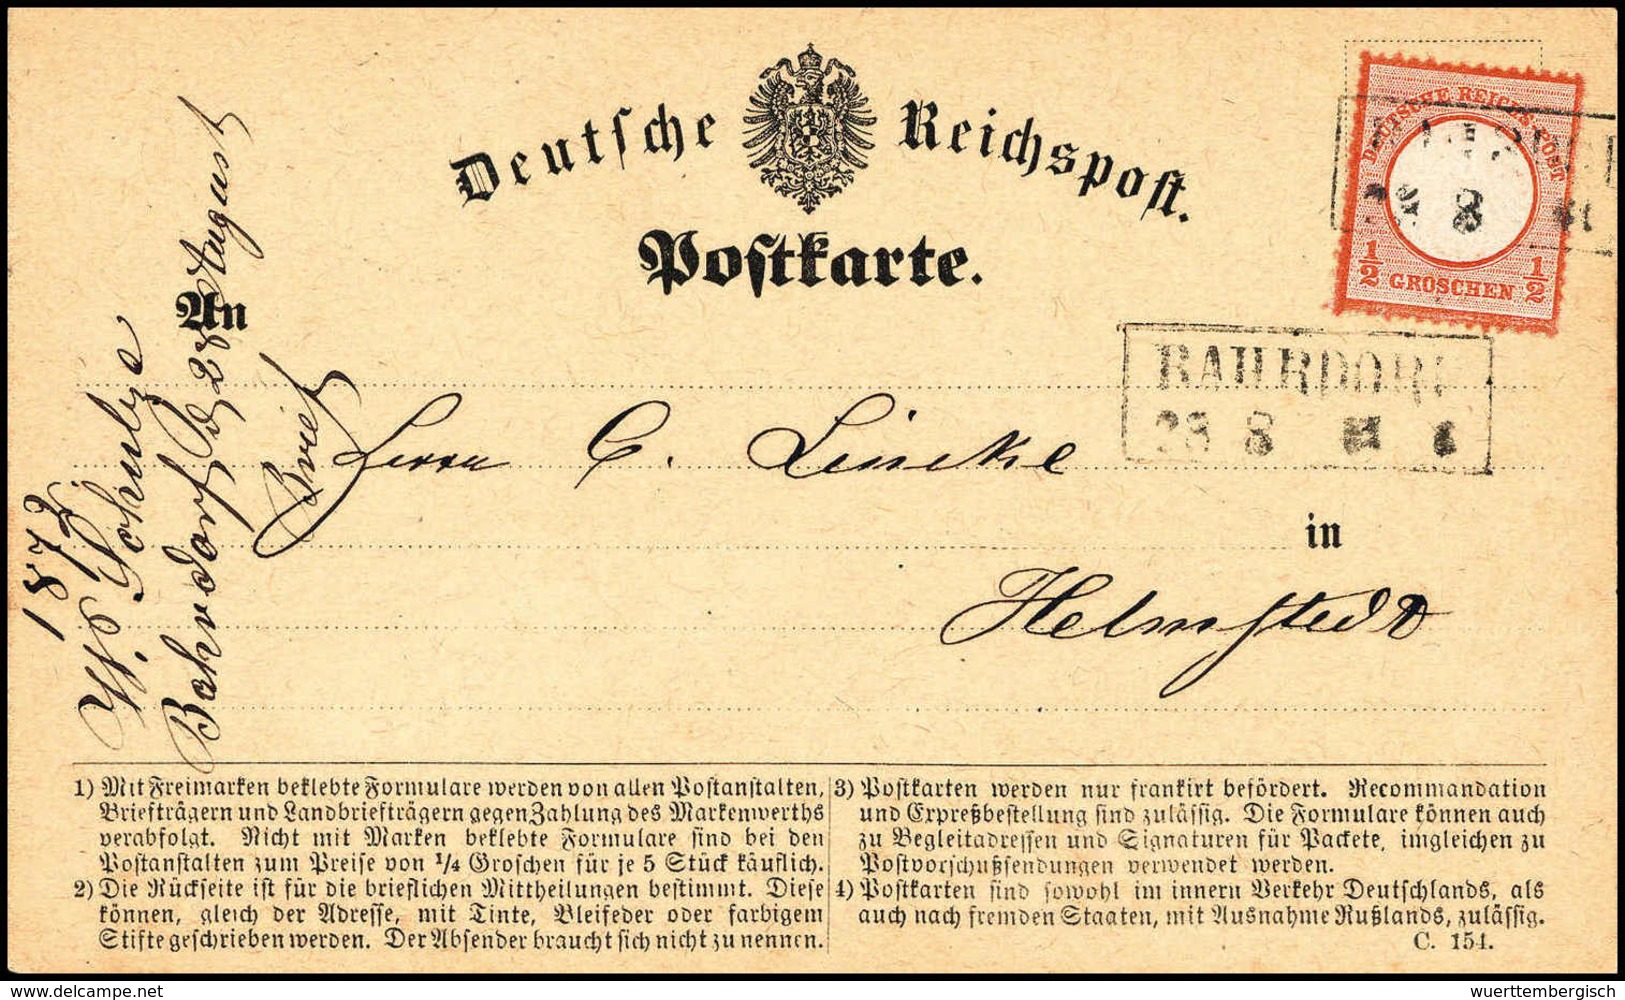 Deutsche Reichspost.
Postkarte.
DEUTSCHE REICHS-POST
½ GROSCHEN ½
8
An
BAHRDORF
28 8 4
Herrn C. Lincke
in
Helmstedt
1872.
W. Schulze
Bahrdorf d. 28 August
Brief
1) Mit Freimarken beklebte Formulare werden von allen Postanstalten,
Briefträgern und Landbriefträgern gegen Zahlung des Markenwerths
verabfolgt. Nicht mit Marken beklebte Formulare sind bei den
Postanstalten zum Preise von 1/4 Groschen für je 5 Stück käuflich.
2) Die Rückseite ist für die brieflichen Mittheilungen bestimmt. Diese
können, gleich der Adresse, mit Tinte, Bleifeder oder farbigem
Stifte geschrieben werden. Der Absender braucht sich nicht zu nennen.
3) Postkarten werden nur frankirt befördert. Recommandation
und Expreßbestellung sind zulässig. Die Formulare können auch
zu Begleitadressen und Signaturen für Packete, imgleichen zu
Postvorschußsendungen verwendet werden.
4) Postkarten sind sowohl im innern Verkehr Deutschlands, als
auch nach fremden Staaten, mit Ausnahme Rußlands, zulässig.
C. 154.
www.delcampe.net
wuerttembergisch